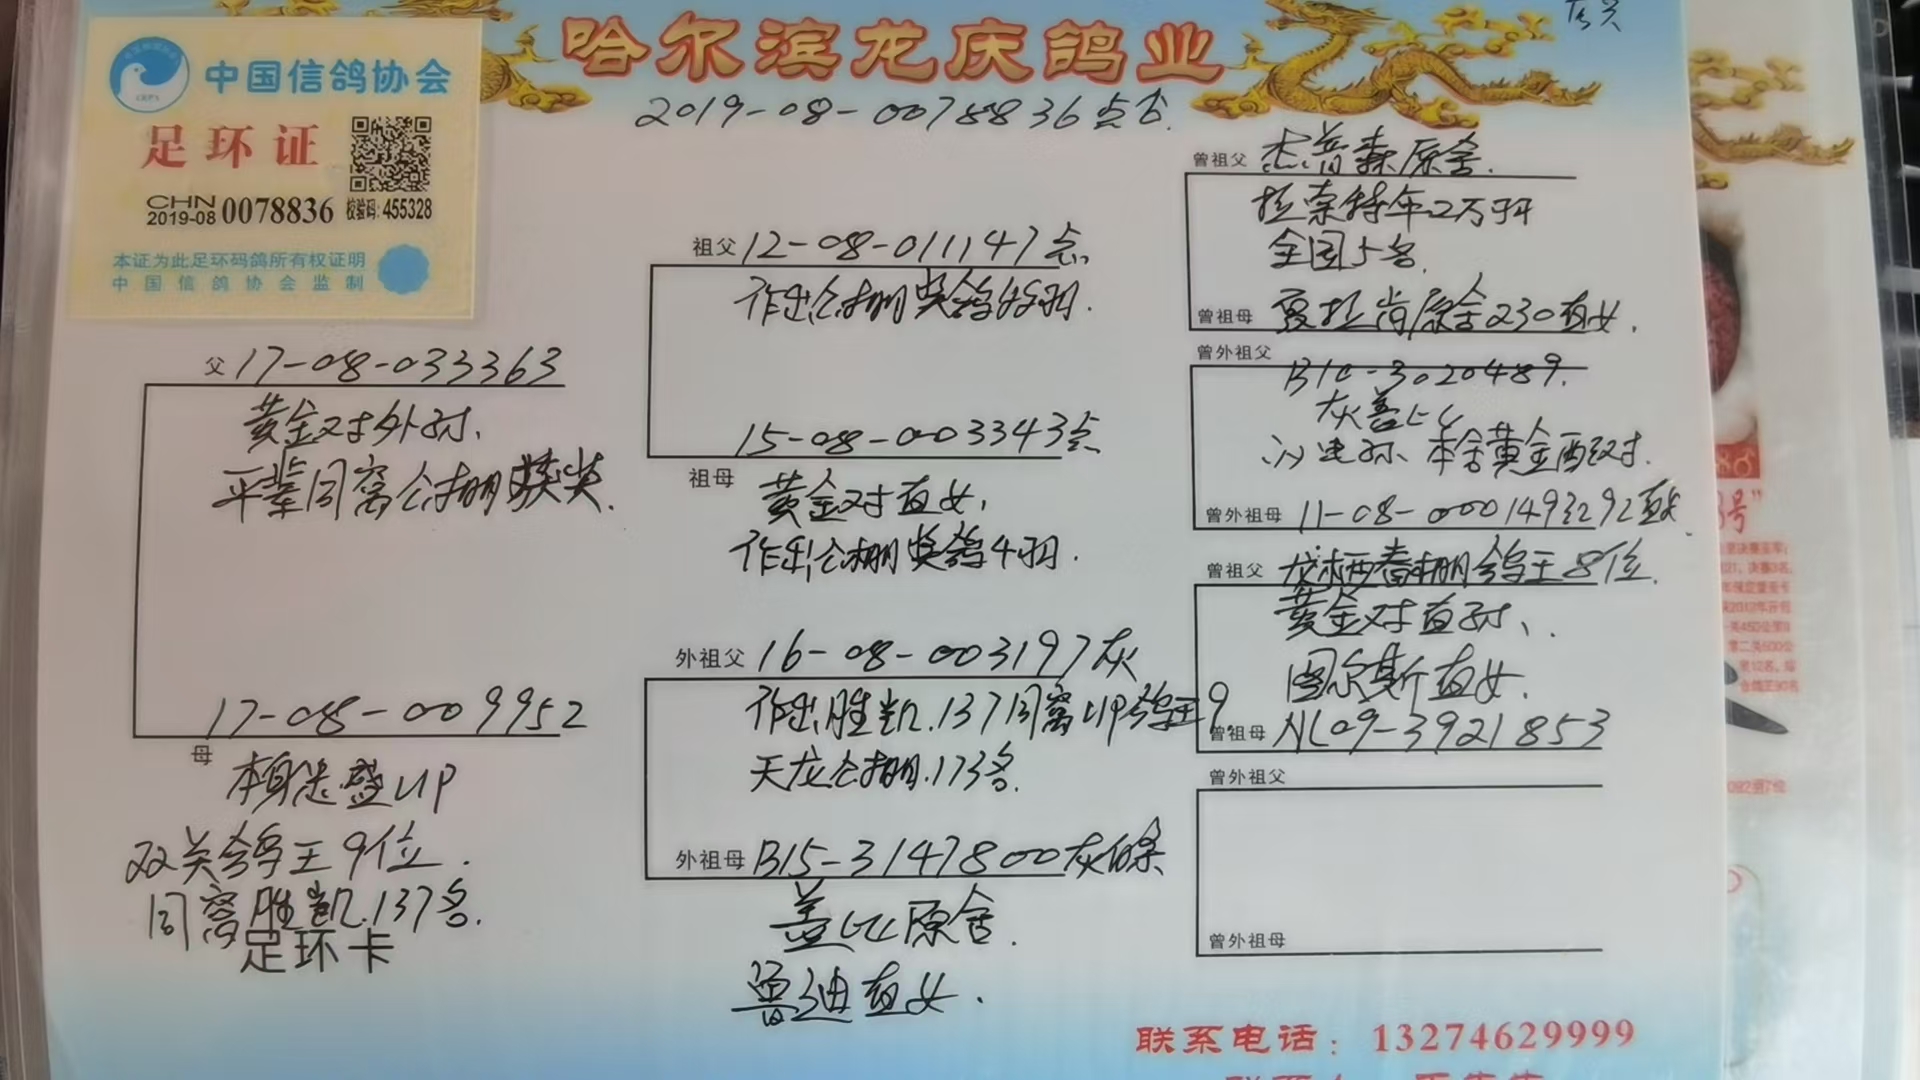 哈尔滨龙庆鸽业
中国信鸽协会
足环证
CHN
2019-08 0078836 校验码:455328
本证为此足环码鸽所有权证明
中国信鸽协会监制
2019-08-0078836
父 17-08-033363
黄金对外孙、
平辈同窝公棚获奖.
17-08-009952
母
本身 盛UP
双关鸽王9位.
同窝胜凯.137名.
足环卡
祖父 12-08-011147点
作出公棚奖鸽 羽.
15-08-003343点
祖母
黄金对直女,
作出公棚奖鸽4羽.
外祖父 16-08-003197灰
作出胜凯.137同窝UP鸽王9.
天龙公棚.173名.
外祖母 B15-3147800灰白条
盖比原舍.
鲁迪直女.
曾祖父 杰普森原舍.
拉索特年2万羽
全国5名.
曾祖母 夏拉肯原舍230直女.
曾外祖父
B10-3020489.
灰盖比
本舍黄金配对.
曾外祖母 11-08-0001493292直女
曾祖父 龙栖春棚鸽王8位.
黄金对直孙、.
图尔斯直女.
曾祖母 NL09-3921853
曾外祖父
曾外祖母
联系电话：13274629999